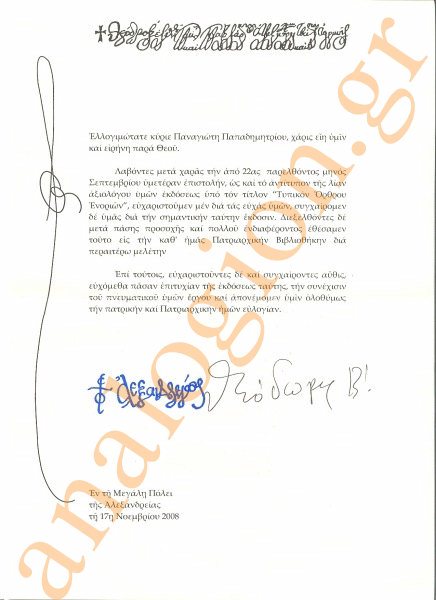 Ἐλλογιμώτατε κύριε Παναγιώτη Παπαδημητρίου, χάρις εἴη ὑμῖν
καί εἰρήνη παρά Θεοῦ.
Λαβόντες μετά χαρᾶς τήν ἀπό 22ας παρελθόντος μηνός
Σεπτεμβρίου ὑμετέραν ἐπιστολήν, ὡς καί τό ἀντίτυπον τῆς λίαν
ἀξιολόγου ὑμῶν ἐκδόσεως ὑπό τόν τίτλον "Τυπικόν Ὄρθρου
Ἐνοριῶν", εὐχαριστοῦμεν μέν διά τάς εὐχάς ὑμῶν, συγχαίρομεν
δέ ὑμᾶς διά τήν σημαντικήν ταύτην ἔκδοσιν. Διεξελθόντες δέ
μετά πάσης προσοχῆς καί πολλοῦ ἐνδιαφέροντος ἐθέσαμεν
τοῦτο εἰς τήν καθ' ἡμᾶς Πατριαρχικήν Βιβλιοθήκην διά
περαιτέρω μελέτην
Ἐπί τούτοις, εὐχαριστοῦντες δέ καί συγχαίροντες αὖθις,
εὐχόμεθα πᾶσαν ἐπιτυχίαν τῆς ἐκδόσεως ταύτης, τήν συνέχισιν
τοῦ πνευματικοῦ ὑμῶν ἔργου καί ἀπονέμομεν ὑμῖν ὁλοθύμως
τήν πατρικήν καί Πατριαρχικήν ἡμῶν εὐλογίαν.
Θεόδωρος Β'
Ἐν τῇ Μεγάλῃ Πόλει
τῆς Ἀλεξανδρείας
τῇ 17ῃ Νοεμβρίου 2008
analogion.gr